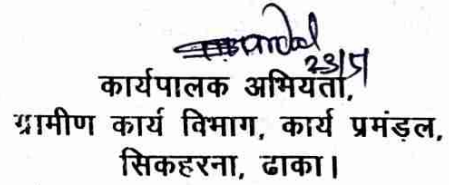 23/5
कार्यपालक अभियता,
ग्रामीण कार्य विभाग, कार्य प्रमंड़ल,
सिकहरना, ढाका।